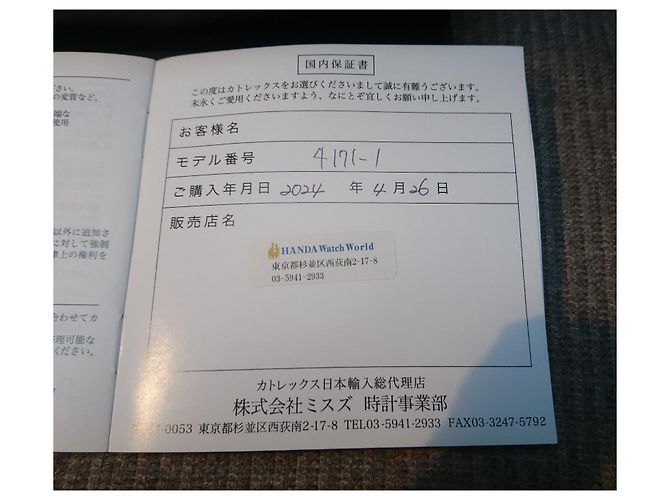 さい。
の変質など、
端な
使用
以外に追加さ
に対して強制
律上の権利を
合わせてカ
理可能な
ください。
国内保証書
この度はカトレックスをお選びくださいまして誠に有難うございます。
末永くご愛用くださいますよう、なにとぞ宜しくお願い申し上げます。
お客様名
モデル番号 4171-1
ご購入年月日 2024 年 4 月 26 日
販売店名
HANDA Watch World
東京都杉並区西荻南2-17-8
03-5941-2933
カトレックス日本輸入総代理店
株式会社ミスズ 時計事業部
7-0053 東京都杉並区西荻南2-17-8 TEL03-5941-2933 FAX03-3247-5792